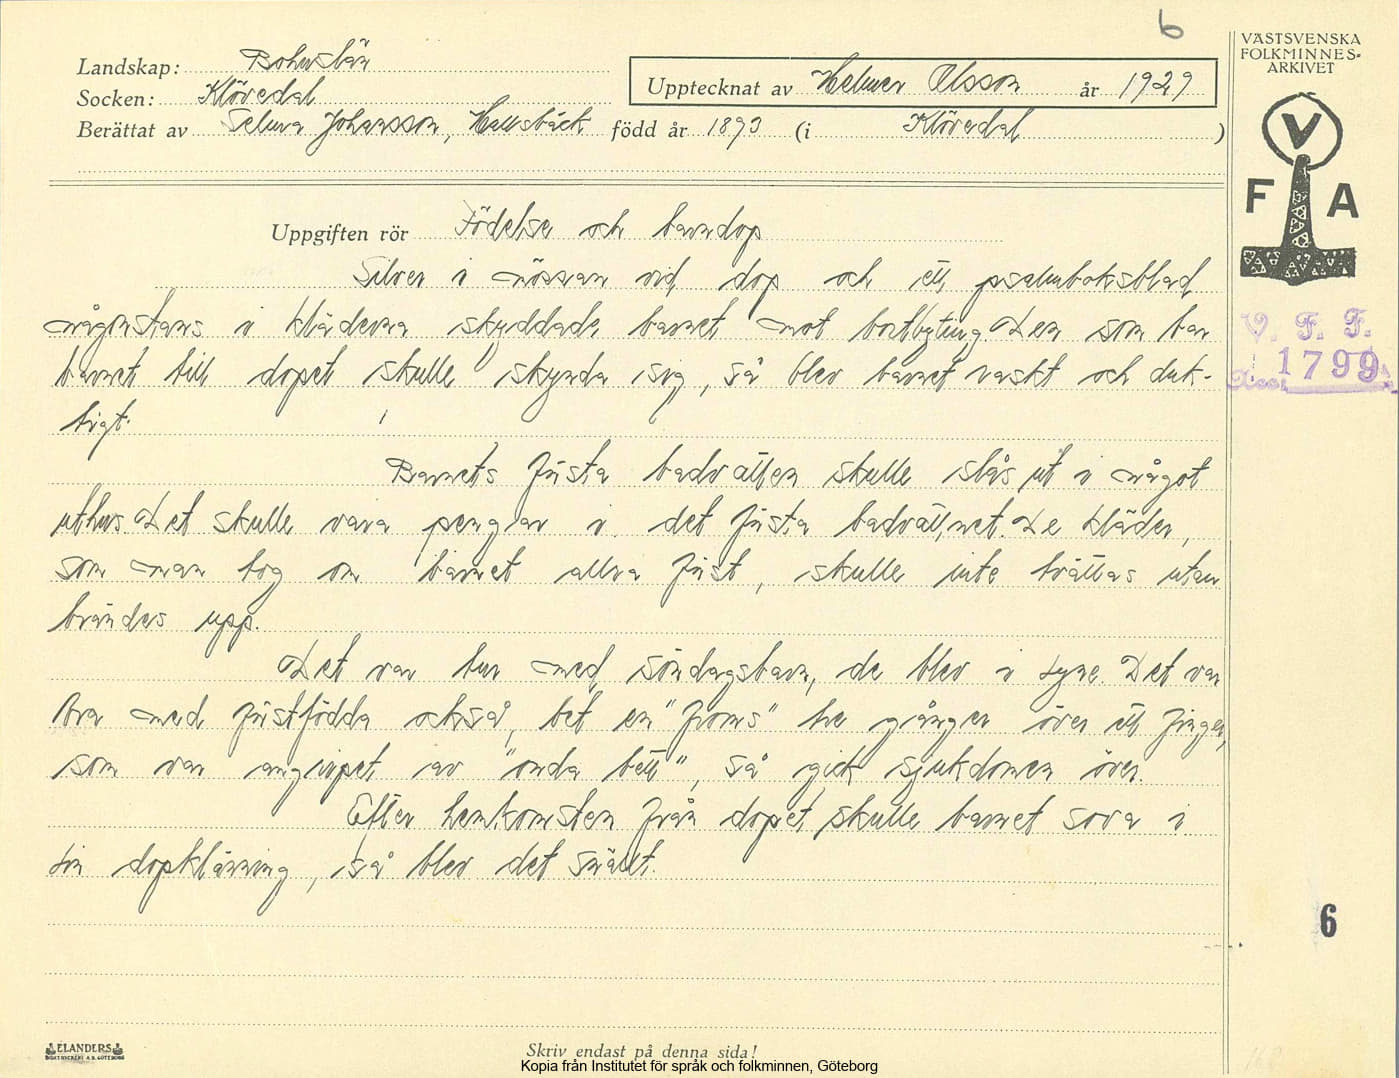 6
VÄSTSVENSKA
FOLKMINNES-
ARKIVET
Landskap: Bohuslän
Socken: Klövedal
Upptecknat av Helmer Olsson år 1929
Berättat av Selma Johansson, Hallsbäck född år 1893 (i Klövedal)
V
F A
Uppgiften rör Födelse och barndop
Silver i mössan vid dop och ett psalmboksblad
någonstans i kläderna skyddade barnet mot bortbyting. Den som bar
barnet till dopet skulle skynda sig, så blev barnet raskt och duk-
tigt.
V. F. F.
Acc. 1799
Barnets första badvatten skulle slås ut i något
uthus. Det skulle vara pengar i det första badvattnet. De kläder,
som man tog om barnet allra först, skulle inte tvättas utan
brändes upp.
Det var tur med söndagsbarn, de blev i syne. Det var
bra med först födda också, bet en "froms" tre gånger över ett finger,
som var angripet av "onda bett", så gick sjukdomen över.
Efter hemkomsten från dopet skulle barnet sova i
sin dopklänning, så blev det snällt.
6
ELANDERS
BOKTRYCKERI A.B. GÖTEBORG
Skriv endast på denna sida!
Kopia från Institutet för språk och folkminnen, Göteborg